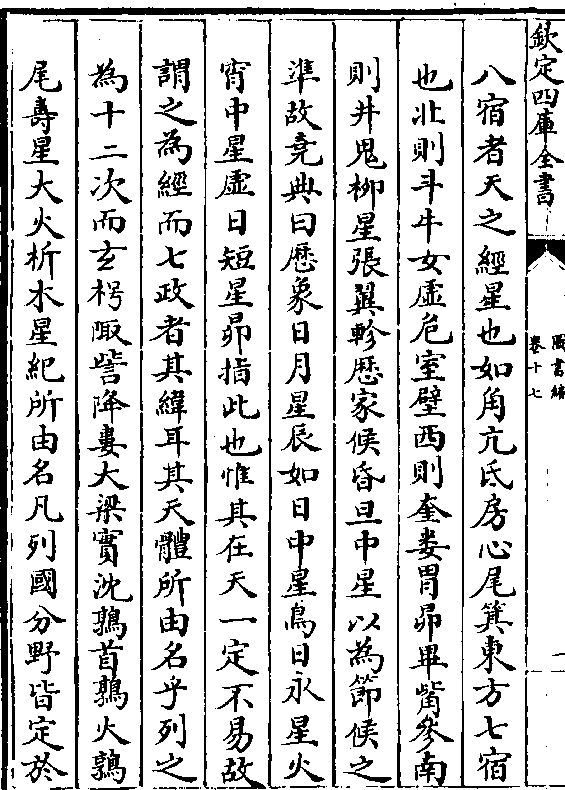 欽定四庫全書
圖書編
卷十七
一
八宿者天之經星也如角亢氐房心尾箕東方七宿
也北則斗牛女虛危室壁西則奎婁胃昴畢觜參南
則井鬼柳星張翼軫厯家候昏旦中星以為節候之
準故堯典曰厯象日月星辰如日中星鳥日永星火
宵中星虛日短星昴指此也惟其在天一定不易故
謂之為經而七政者其緯耳其天體所由名乎列之
為十二次而玄枵陬訾降婁大梁實沈鶉首鶉火鶉
尾壽星大火析木星紀所由名凡列國分野皆定於